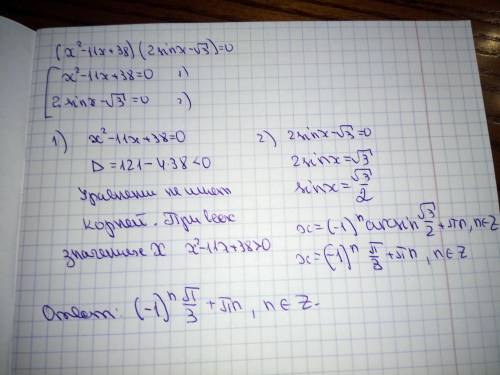 (x²-11x+38)(2sinx-√3)=0
[ x²-11x+38=0 1)
2sinx-√3=0 2)
1) x²-11x+38=0
D=121-4·38<0
Уравнение не имеет
корней. При всех
значениях x x²-11x+38>0
2) 2sinx-√3=0
2sinx=√3
sinx=√3/2
x=(-1)ⁿ arcsin √3/2 +πn, n∈Z
x=(-1)ⁿ π/3 +πn, n∈Z
Ответ: (-1)ⁿ π/3 + πn, n∈Z.